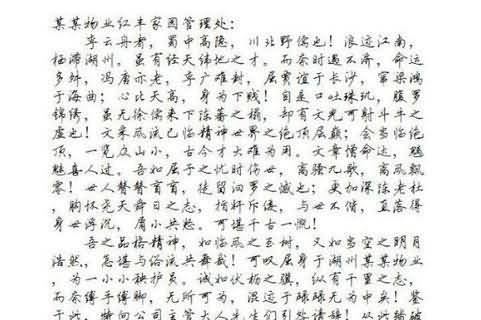 某某物业红丰家园管理处：
李云舟者，蜀中高隐，川北野儒也！浪迹江南，
栖滞湖州。虽有经天纬地之才。而奈时遇不济，命运
多舛，冯唐亦老，李广难封，屈贾谊于长沙，窜梁鸿
于海曲；心比天高，身为下贱！自是口吐珠玑，腹罗
锦绣，虽无徐儒来下陈蕃之榻，却有文光可射斗牛之
虚也！文采风流已临精神世界之绝顶层巅；会当临绝
顶，一览众山小，古今才大难为用。文章憎命达，魑
魅喜人过。吾如屈子之忧时伤世，离骚九歌，离风飘
零！世人聱聱首首，徒留汨罗之憾也；更加深陈老杜
，胸怀尧天舜日之志，指奸斥佞，与世不偕，直落得
身世浮沉，屑小共怒。可堪千古一慨！
吾之品格精神，如临风之玉树，又如当空之明月
浩然，怎堪与俗流共舞哉？可叹屈身于湖州某某物业
，为一小小秧护员。诚如伏枥之骥，纵有千里之志，
而奈缚手缚脚，无所可为，混迹于碌碌无为中矣！鉴
于此，特向公司主管大人先生们引咎请辞！从此择破